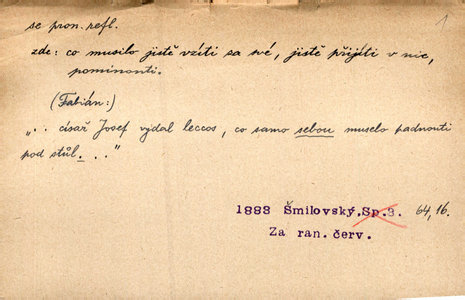 1
se pron. refl.
zde: co musilo jistě vzíti sa své, jistě přijíti v nic,
pominouti.
(Fabián:)
„. . císař Josef vydal leccos, co samo sebou muselo padnouti
pod stůl. . ."
1883 Šmilovský.Sp.3. 64,16.
Za ran. červ.